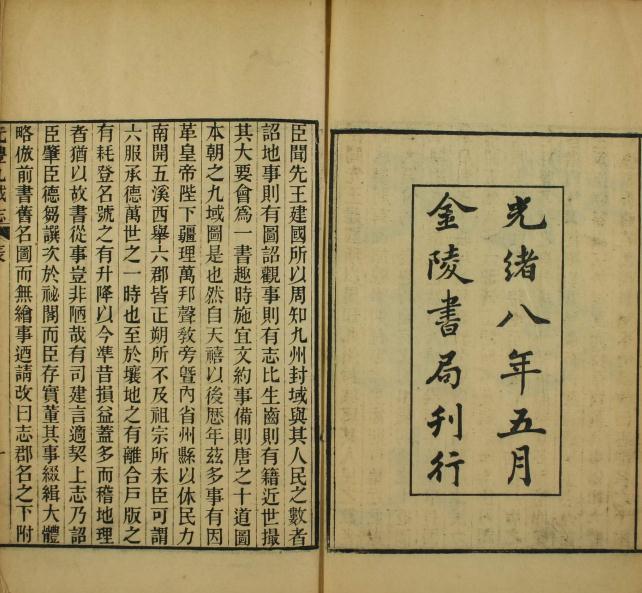 光緒八年五月
金陵書局刊行
臣聞先王建國所以周知九州封域與其人民之數者
詔地事則有圖詔觀事則有志比生齒則有籍近世撮
其大要會爲一書趣時施宜文約事備則唐之十道圖
本朝之九域圖是也然自天禧以後歴年茲多事有因
革皇帝陛下疆理萬邦聲敎旁曁內省州縣以休民力
南開五溪西舉六郡皆正朔所不及祖宗所未臣可謂
六服承德萬世之一時也至於壤地之有離合戸版之
有耗登名號之有升降以今準昔損益蓋多而稽地理
者猶以故書從事豈非陋哉有司建言適契上志乃詔
臣肇臣德芻譔次於祕閣而臣存實董其事綴緝大體
略倣前書舊名圖而無繪事迺請改曰志郡名之下附
元豐九域志 表 一